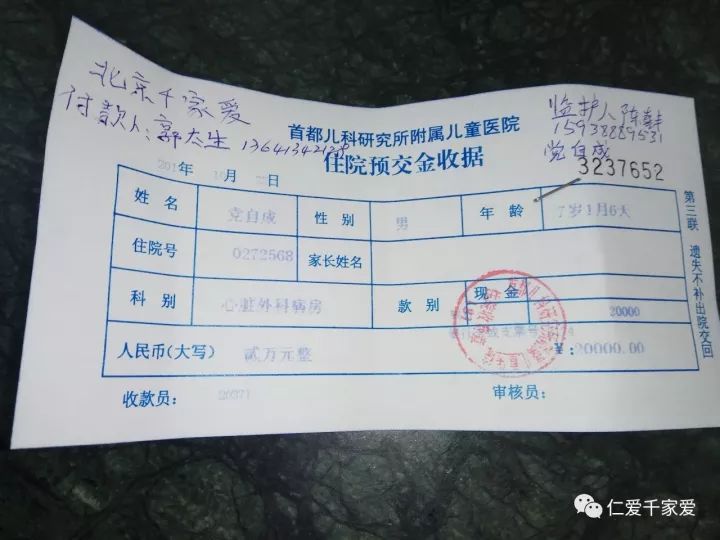 北京千家爱
付款人:郭大生
监护人 陈
党自成
首都儿科研究所附属儿童医院
住院预交金收据
3237652
年 月 日
姓名 党自成 性别 男 年龄 7岁1月6天
住院号 0272568 家长姓名
科别 心脏外科病房 款别 现金 20000
人民币(大写) 贰万元整 ¥:20000.00
收款员: 审核员:
第三联 遗失不补出院交回
仁爱千家爱